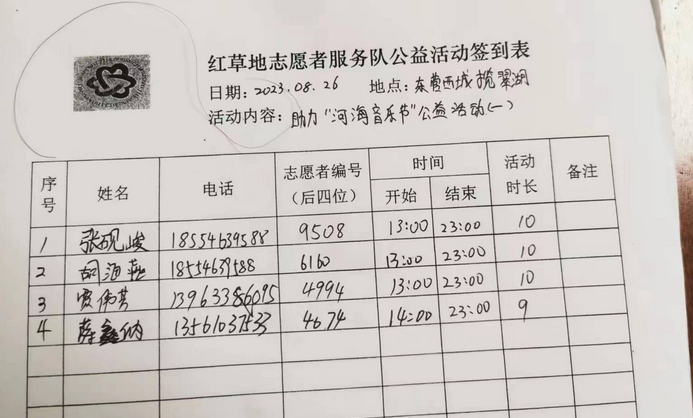 红草地志愿者服务队公益活动签到表
日期：2023.08.26 地点：东营西城揽翠湖
活动内容：助力"河海音乐节"公益活动(一)
序号 姓名 电话 志愿者编号（后四位） 时间 开始 结束 活动时长 备注
1 张砚峻 18554639588 9508 13:00 23:00 10
2 胡海燕 18554639588 6160 13:00 23:00 10
3 贾伟其 13963386095 4994 13:00 23:00 10
4 薛鑫纳 13561037533 4674 14:00 23:00 9